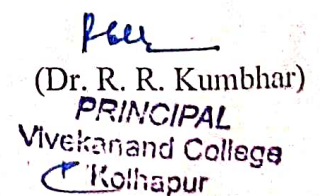 (Dr. R. R. Kumbhar)
PRINCIPAL
Vivekanand College
Kolhapur